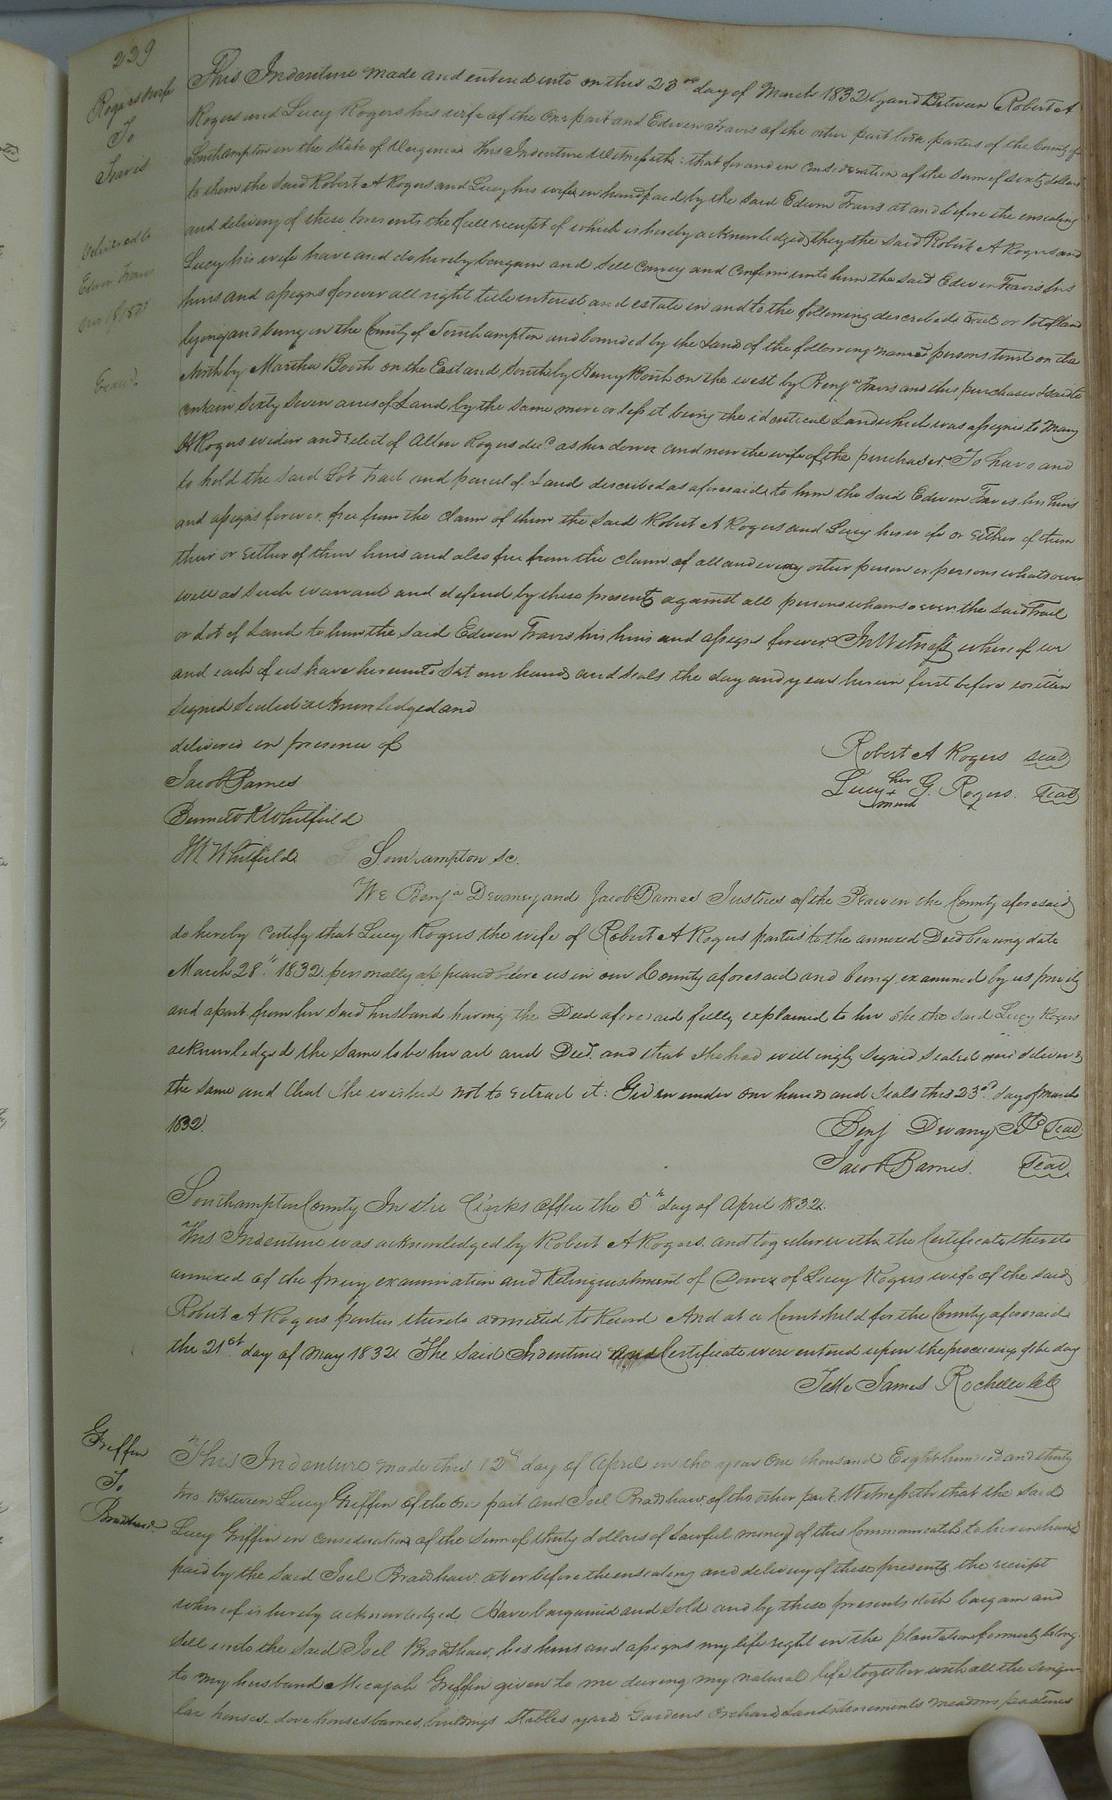 239
Rogers & wife
To
Travis
Delivered to
Edwin Travis
Exam.d
This Indenture made and entered into on this 23rd day of March 1832 by and Between Robert A
Rogers and Lucy Rogers his wife of the One part and Edwin Travis of the other part both parties of the County of
Southampton in the State of Virginia. This Indenture Witnesseth: that for and in consideration of the Sum of Sixty dollars
to them the said Robert A Rogers and Lucy his wife in hand paid by the said Edwin Travis at and before the ensealing
and delivery of these presents the full receipt of which is hereby acknowledged, they the said Robert A Rogers and
Lucy his wife have and do hereby bargain and Sell Convey and Confirm unto him the said Edwin Travis his
heirs and assigns forever all right title interest and estate in and to the following described tract or lot of Land
lying and being in the County of Southampton and bounded by the Land of the following named persons towit on the
North by Martha Booth on the East and South by Henry Booth on the west by Benj.a Travis and this purchaser & said to
contain Sixty Seven acres of Land by the Same more or less it being the identical Land which was assigned to Mary
H Rogers widow and relict of Alden Rogers dec.d as her dower and now the wife of the purchaser. To have and
to hold the said Lot tract and parcel of Land described as aforesaid to him the said Edwin Travis his heirs
and assigns forever, free from the Claim of them the Said Robert A Rogers and Lucy his wife or Either of them
their or Either of their heirs and also free from the claim of all and every other person or persons whatsoever
will as such warrant and defend by these presents against all persons whomsoever the said tract
or Lot of Land to him the said Edwin Travis his heirs and assigns forever. In Witness whereof we
and each of us have hereunto Set our hands and seals the day and year herein first before written
Signed Sealed acknowledged and
delivered in presence of
Robert A Rogers seal
Jacob Barnes
Lucy her + mark G. Rogers. Seal
Bennett K Whitfield
M Whitfield
Southampton Sc.
We Benj.a Devaney and Jacob Barnes Justices of the Peace in the County aforesaid
do hereby certify that Lucy Rogers the wife of Robert A Rogers parties to the annexed Deed bearing date
March 23.d 1832. personally appeared before us in our County aforesaid and being examined by us privily
and apart from her said husband having the Deed aforesaid fully explained to her she the said Lucy Rogers
acknowledged the Same to be her act and Deed. and that she had willingly signed sealed and delivered
the same and that She wished not to retract it: Given under our hands and Seals this 23.d day of march
1832.
Benj Devany JP Seal
Jacob Barnes. Seal
Southampton County In the Clerks office the 5th day of April 1832.
This Indenture was acknowledged by Robert A Rogers. and together with the Certificate thereto
annexed of the privy examination and Relinquishment of Dower of Lucy Rogers wife of the said
Robert A Rogers parties thereto admitted to Record And at a Court held for the County aforesaid
the 21st day of May 1832 The Said Indenture and Certificate were entered upon the proceedings of the day
Teste James Rochelle Clk
Griffin
To
Bradshaw
This Indenture made this 12th day of April in the year One thousand Eight hundred and thirty
two Between Lucy Griffin of the One part and Joel Bradshaw of the other part. Witnesseth that the said
Lucy Griffin in consideration of the Sum of thirty dollars of Lawful money of this Commonwealth to her in hand
paid by the said Joel Bradshaw at or before the ensealing and delivery of these presents the receipt
whereof is hereby acknowledged Have bargained and Sold and by these presents doth bargain and
Sell unto the said Joel Bradshaw, his heirs and assigns my life right in the plantation formerly belong-
to my husband Micajah Griffin given to me during my natural life together with all the singu
lar houses, dove houses barnes, buildings Stables yard Gardens Orchard Lands tenements meadows pastures